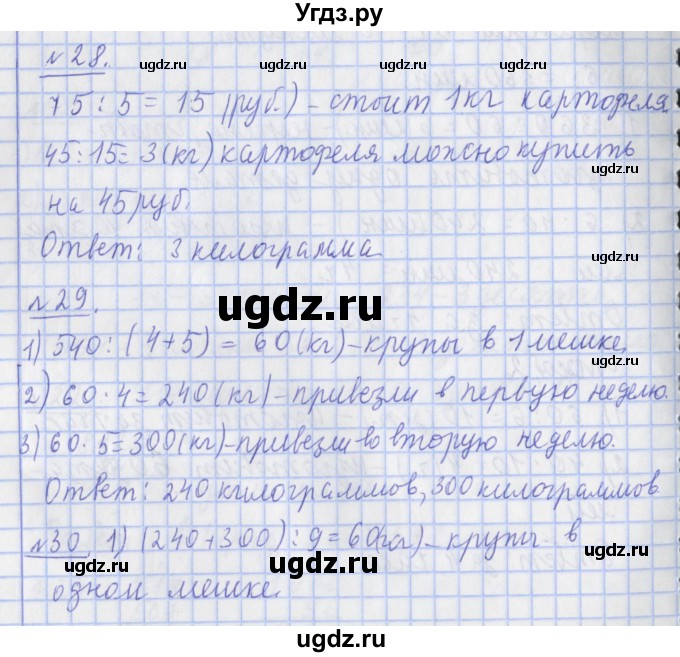 Угдз.ру
№28. ugdz.ru ugdz.ru
75 : 5 = 15 (руб.) - стоит 1 кг картофеля.
45 : 15 = 3 (кг) картофеля можно купить
ugdz.ru ugdz.ru
на 45 руб.
Ответ: 3 килограмма
ugdz.ru ugdz.ru
№29. ugdz.ru
1) 540 : (4+5) = 60 (кг) - крупы в 1 мешке.
ugdz.ru ugdz.ru
2) 60 · 4 = 240 (кг) - привезли в первую неделю.
3) 60 · 5 = 300 (кг) - привезли во вторую неделю.
ugdz.ru ugdz.ru
Ответ: 240 килограммов, 300 килограммов
№30 1) (240+300) : 9 = 60 (кг) - крупы в
ugdz.ru ugdz.ru
одном мешке.
ugdz.ru